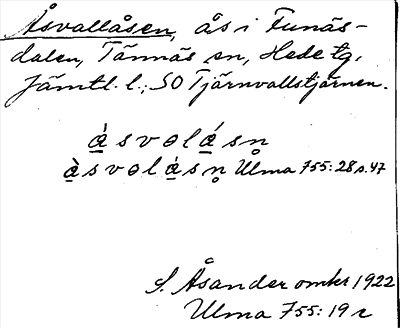 Åsvallåsen, ås i Funäs-
dalen, Tännäs sn, Hede tg,
Jämtl. l.; SO Tjärnvallstjärnen.
ǻ s v ɵ l ǻ s n̥
å̀ s v ɵ l ǻ s n̥ Ulma 755:28 s. 47
S. Åsander omkr 1922
Ulma 755:19 r